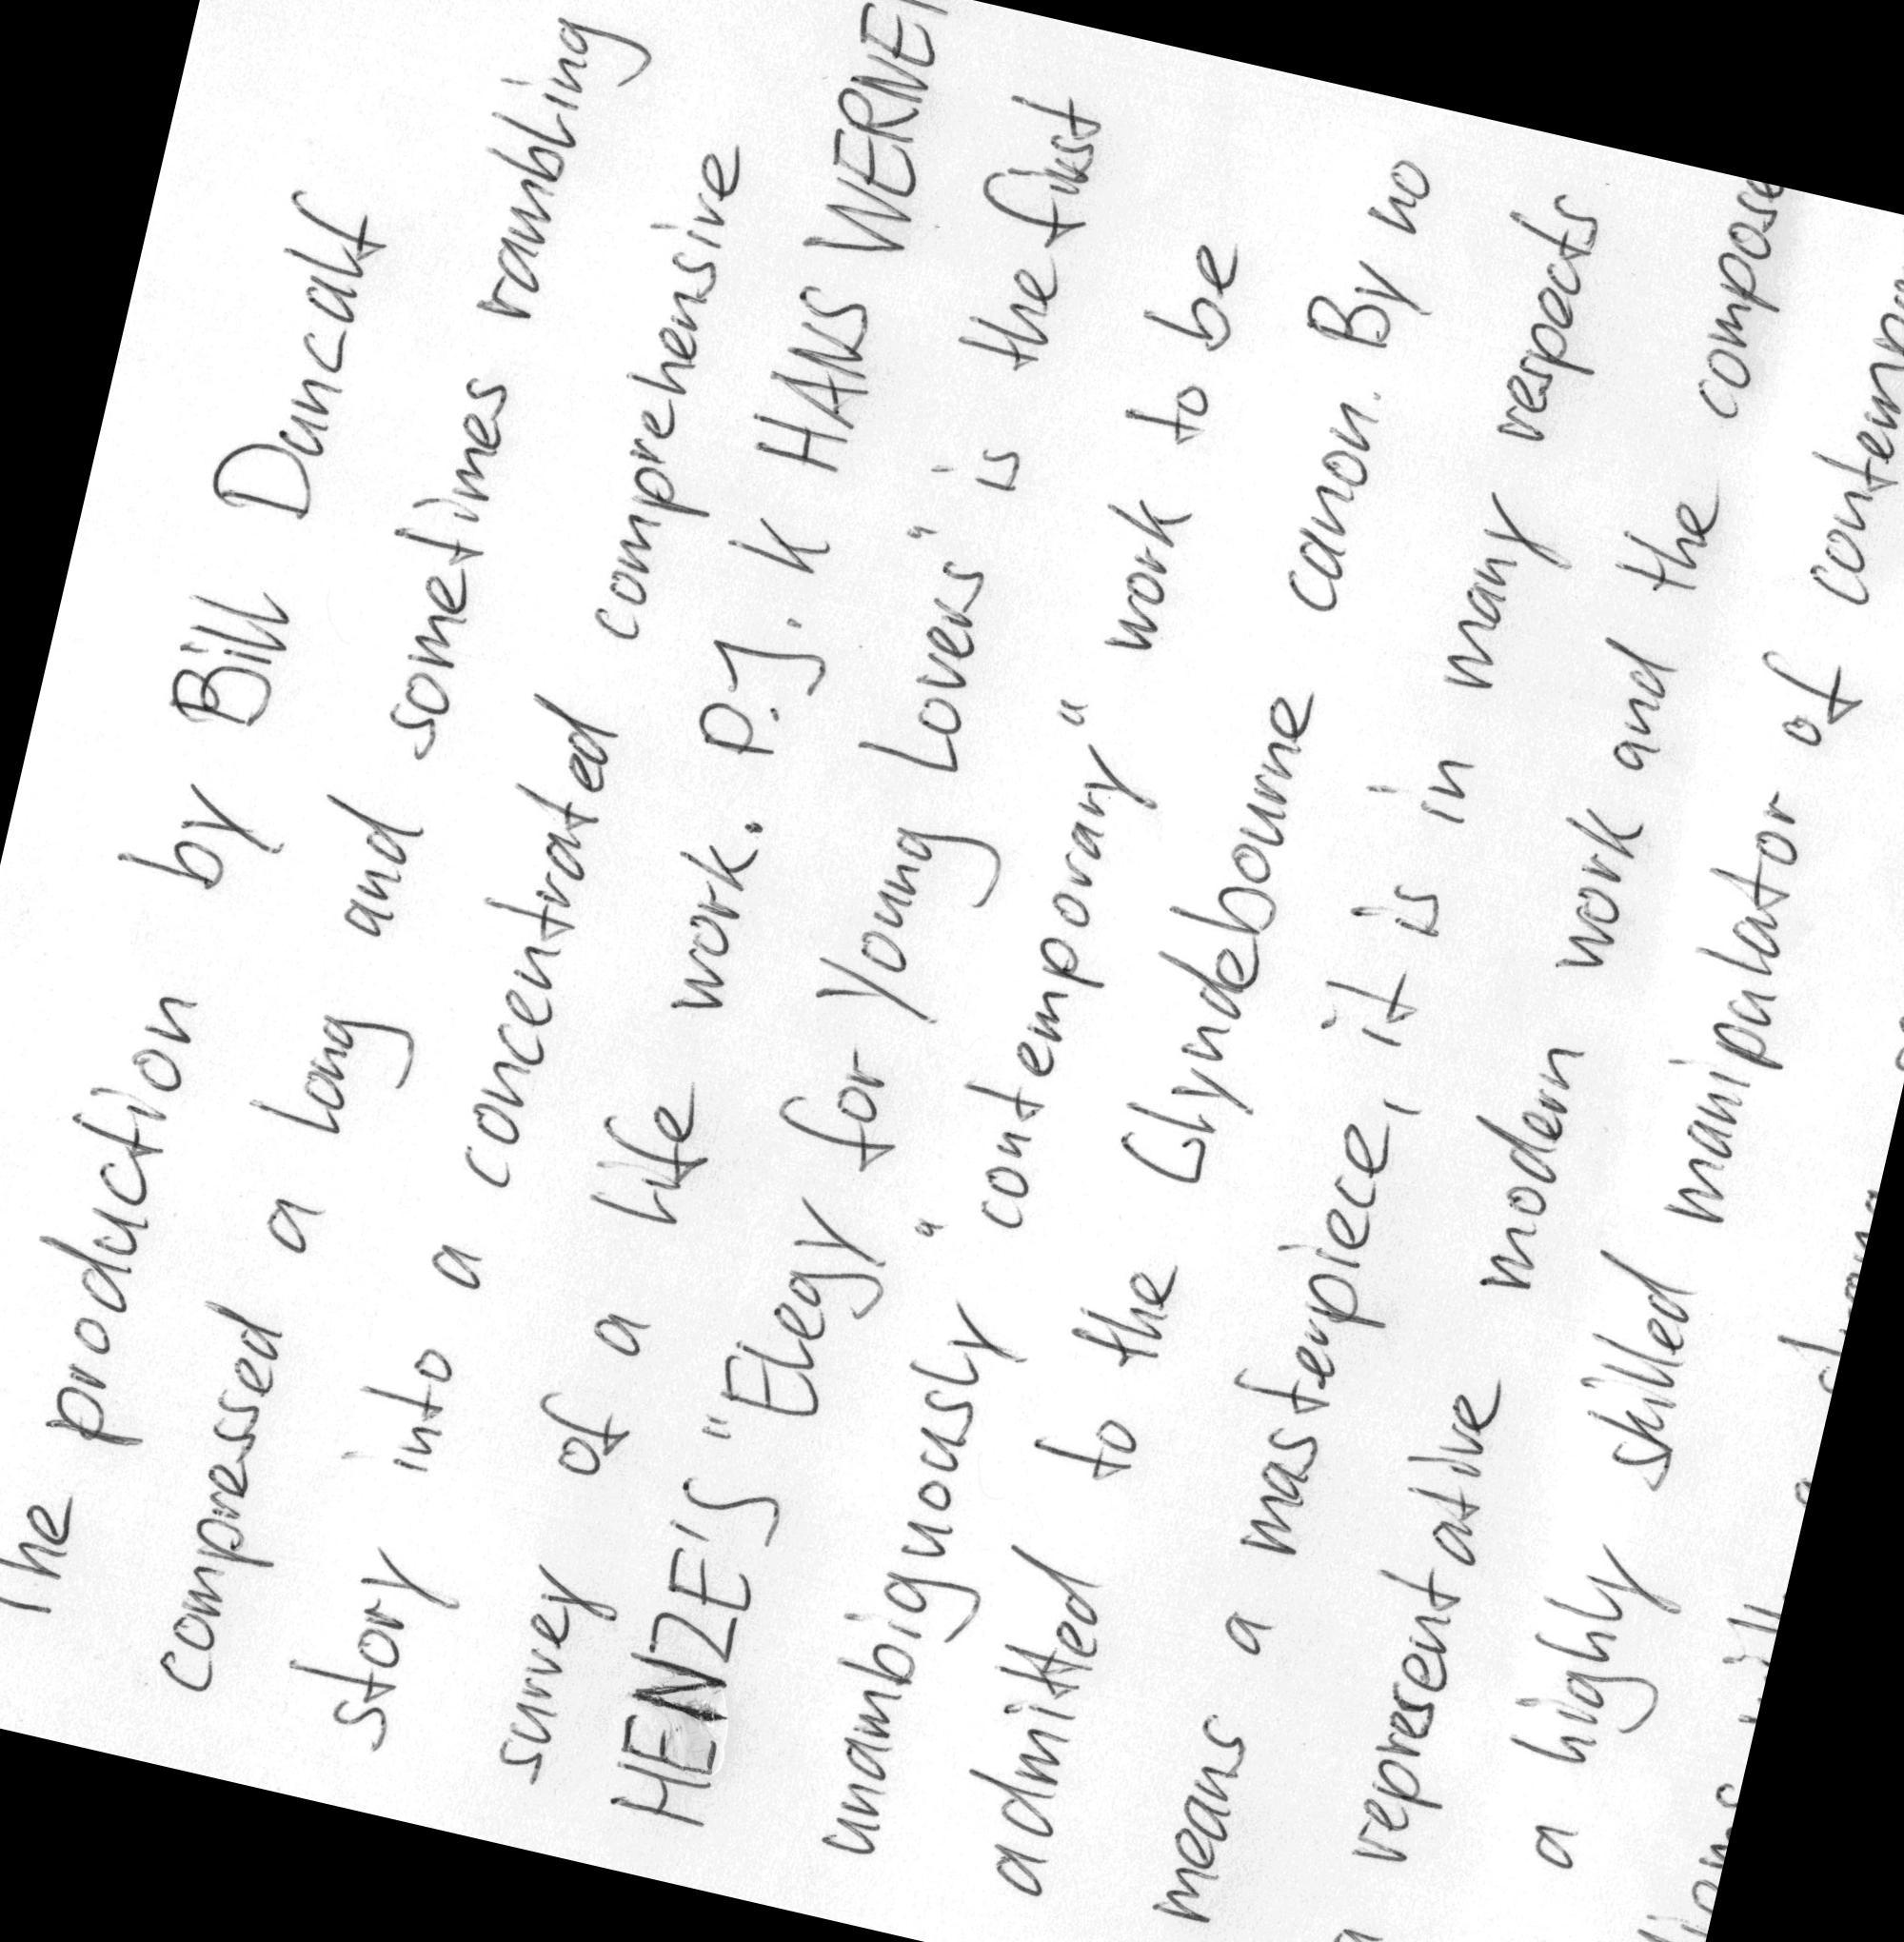 The production by Bill Duncalf
compressed a long and sometimes rambling
story into a concentrated comprehensive
survey of a life work. P.J.K HANS WERNER
HENZE'S "Elegy for Young Lovers" is the first
unambiguously "contemporary" work to be
admitted to the Glyndebourne canon. By no
means a masterpiece, it is in many respects
a representative modern work and the compose
a highly skilled manipulator of contemp